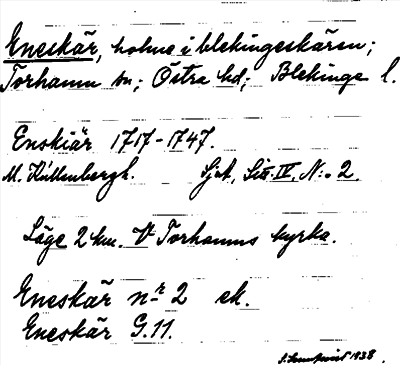 Eneskär, holme i blekingeskären;
Torhamn sn; Östra hd; Blekinge l.
Enskiär 1717-1747.
M. Källenbergh. Sjrt, Sec. IV. No. 2.
Läge 2 km. V Torhamns kyrka.
Eneskär nr 2 ek.
Eneskär G.11.
1938.